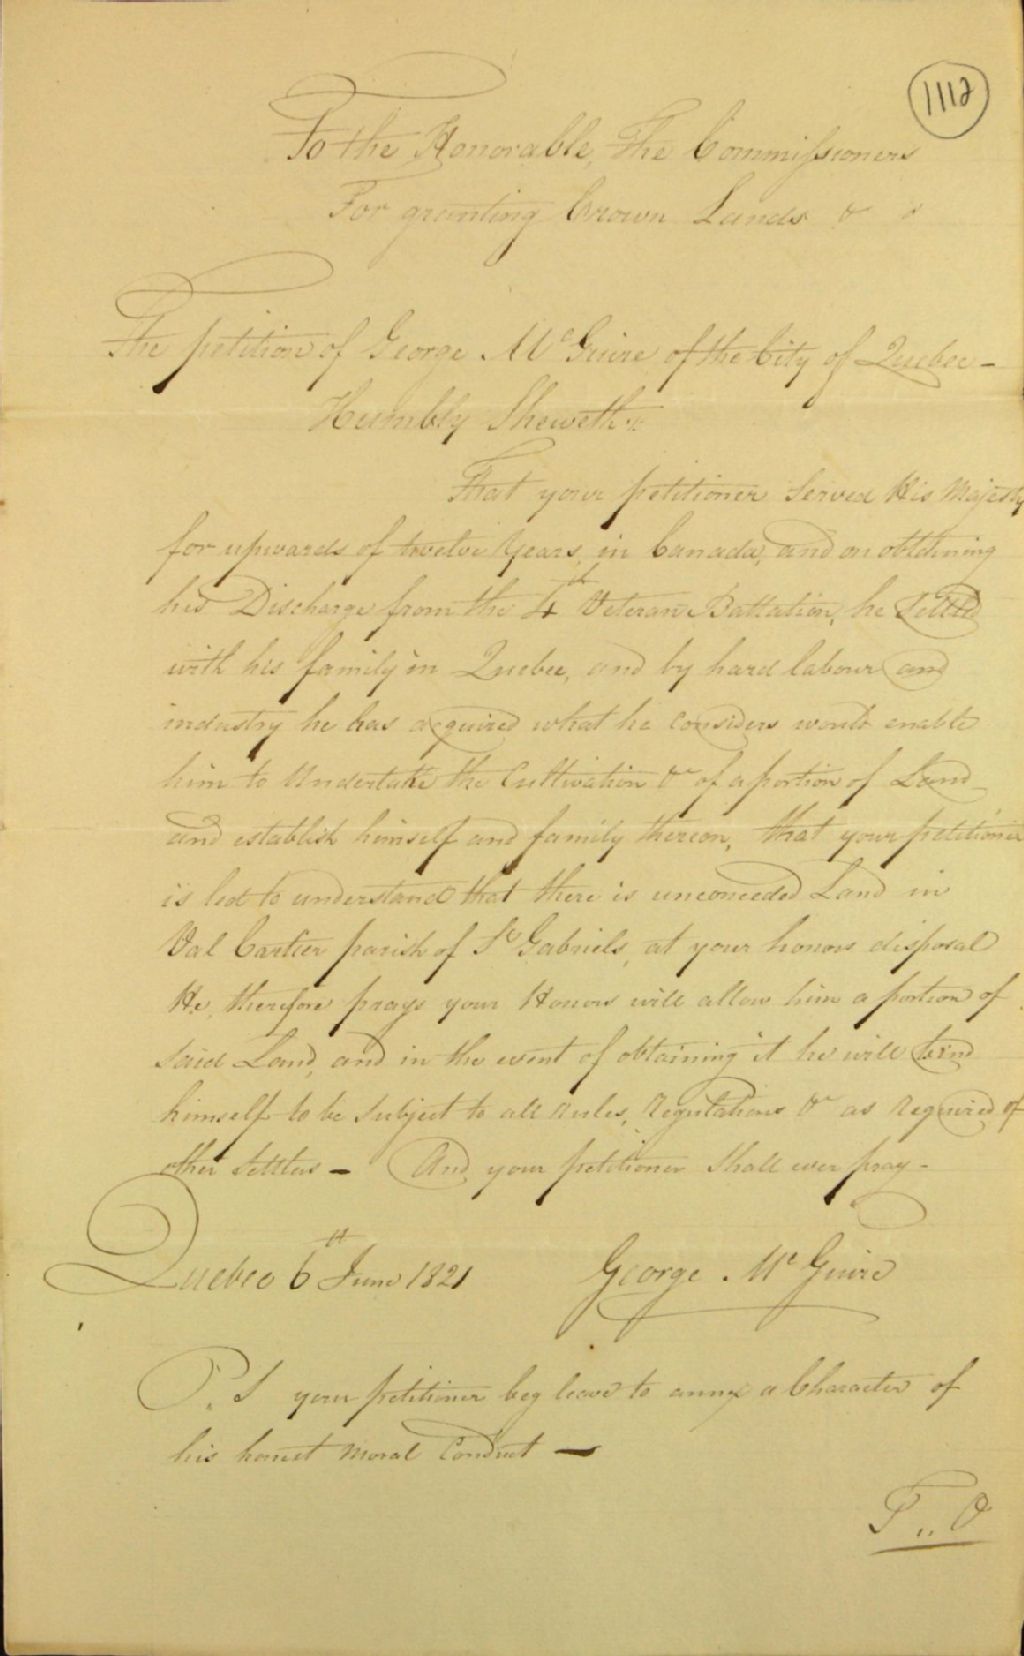 1112
To the Honorable, The Commissioners
For granting Crown Lands &
The petition of George McGuire of the City of Quebec –
Humbly Sheweth
That your petitioner Served His Majesty
for upwards of twelve Years, in Canada, and on obtaining
his Discharge from the 4th Veteran Battalion, he Settled
with his family in Quebec, and by hard labour and
industry he has acquired what he considers would enable
him to Undertake the Cultivation &c of a portion of Land
and establish himself and family thereon, that your petitioner
is led to understand that there is unconceeded Land in
Val Cartier parish of St Gabriels, at your honors disposal
He, therefore prays your Honors will allow him a portion of
said Land, and in the event of obtaining it he will bind
himself to be Subject to all Rules, Regulations &c as Required of
other Settlers – And your petitioner Shall ever pray –
Quebec 6th June 1821 George McGuire
P.S your petitioner beg leave to annex a Character of
his honest Moral Conduct –
T,, O